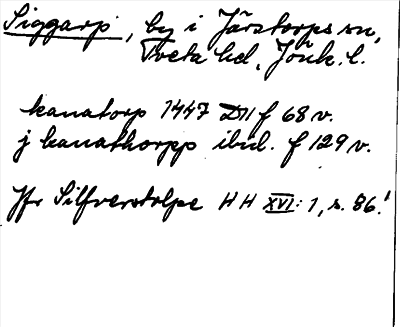 Siggarp, by i Järstorps sn,
Tveta hd, Jönk. l.
kanatorp 1447 D II f 68 v.
j kanathorpp ibid. f 129 v.
Jfr Silfverstolpe HH XVI: 1, s. 86!